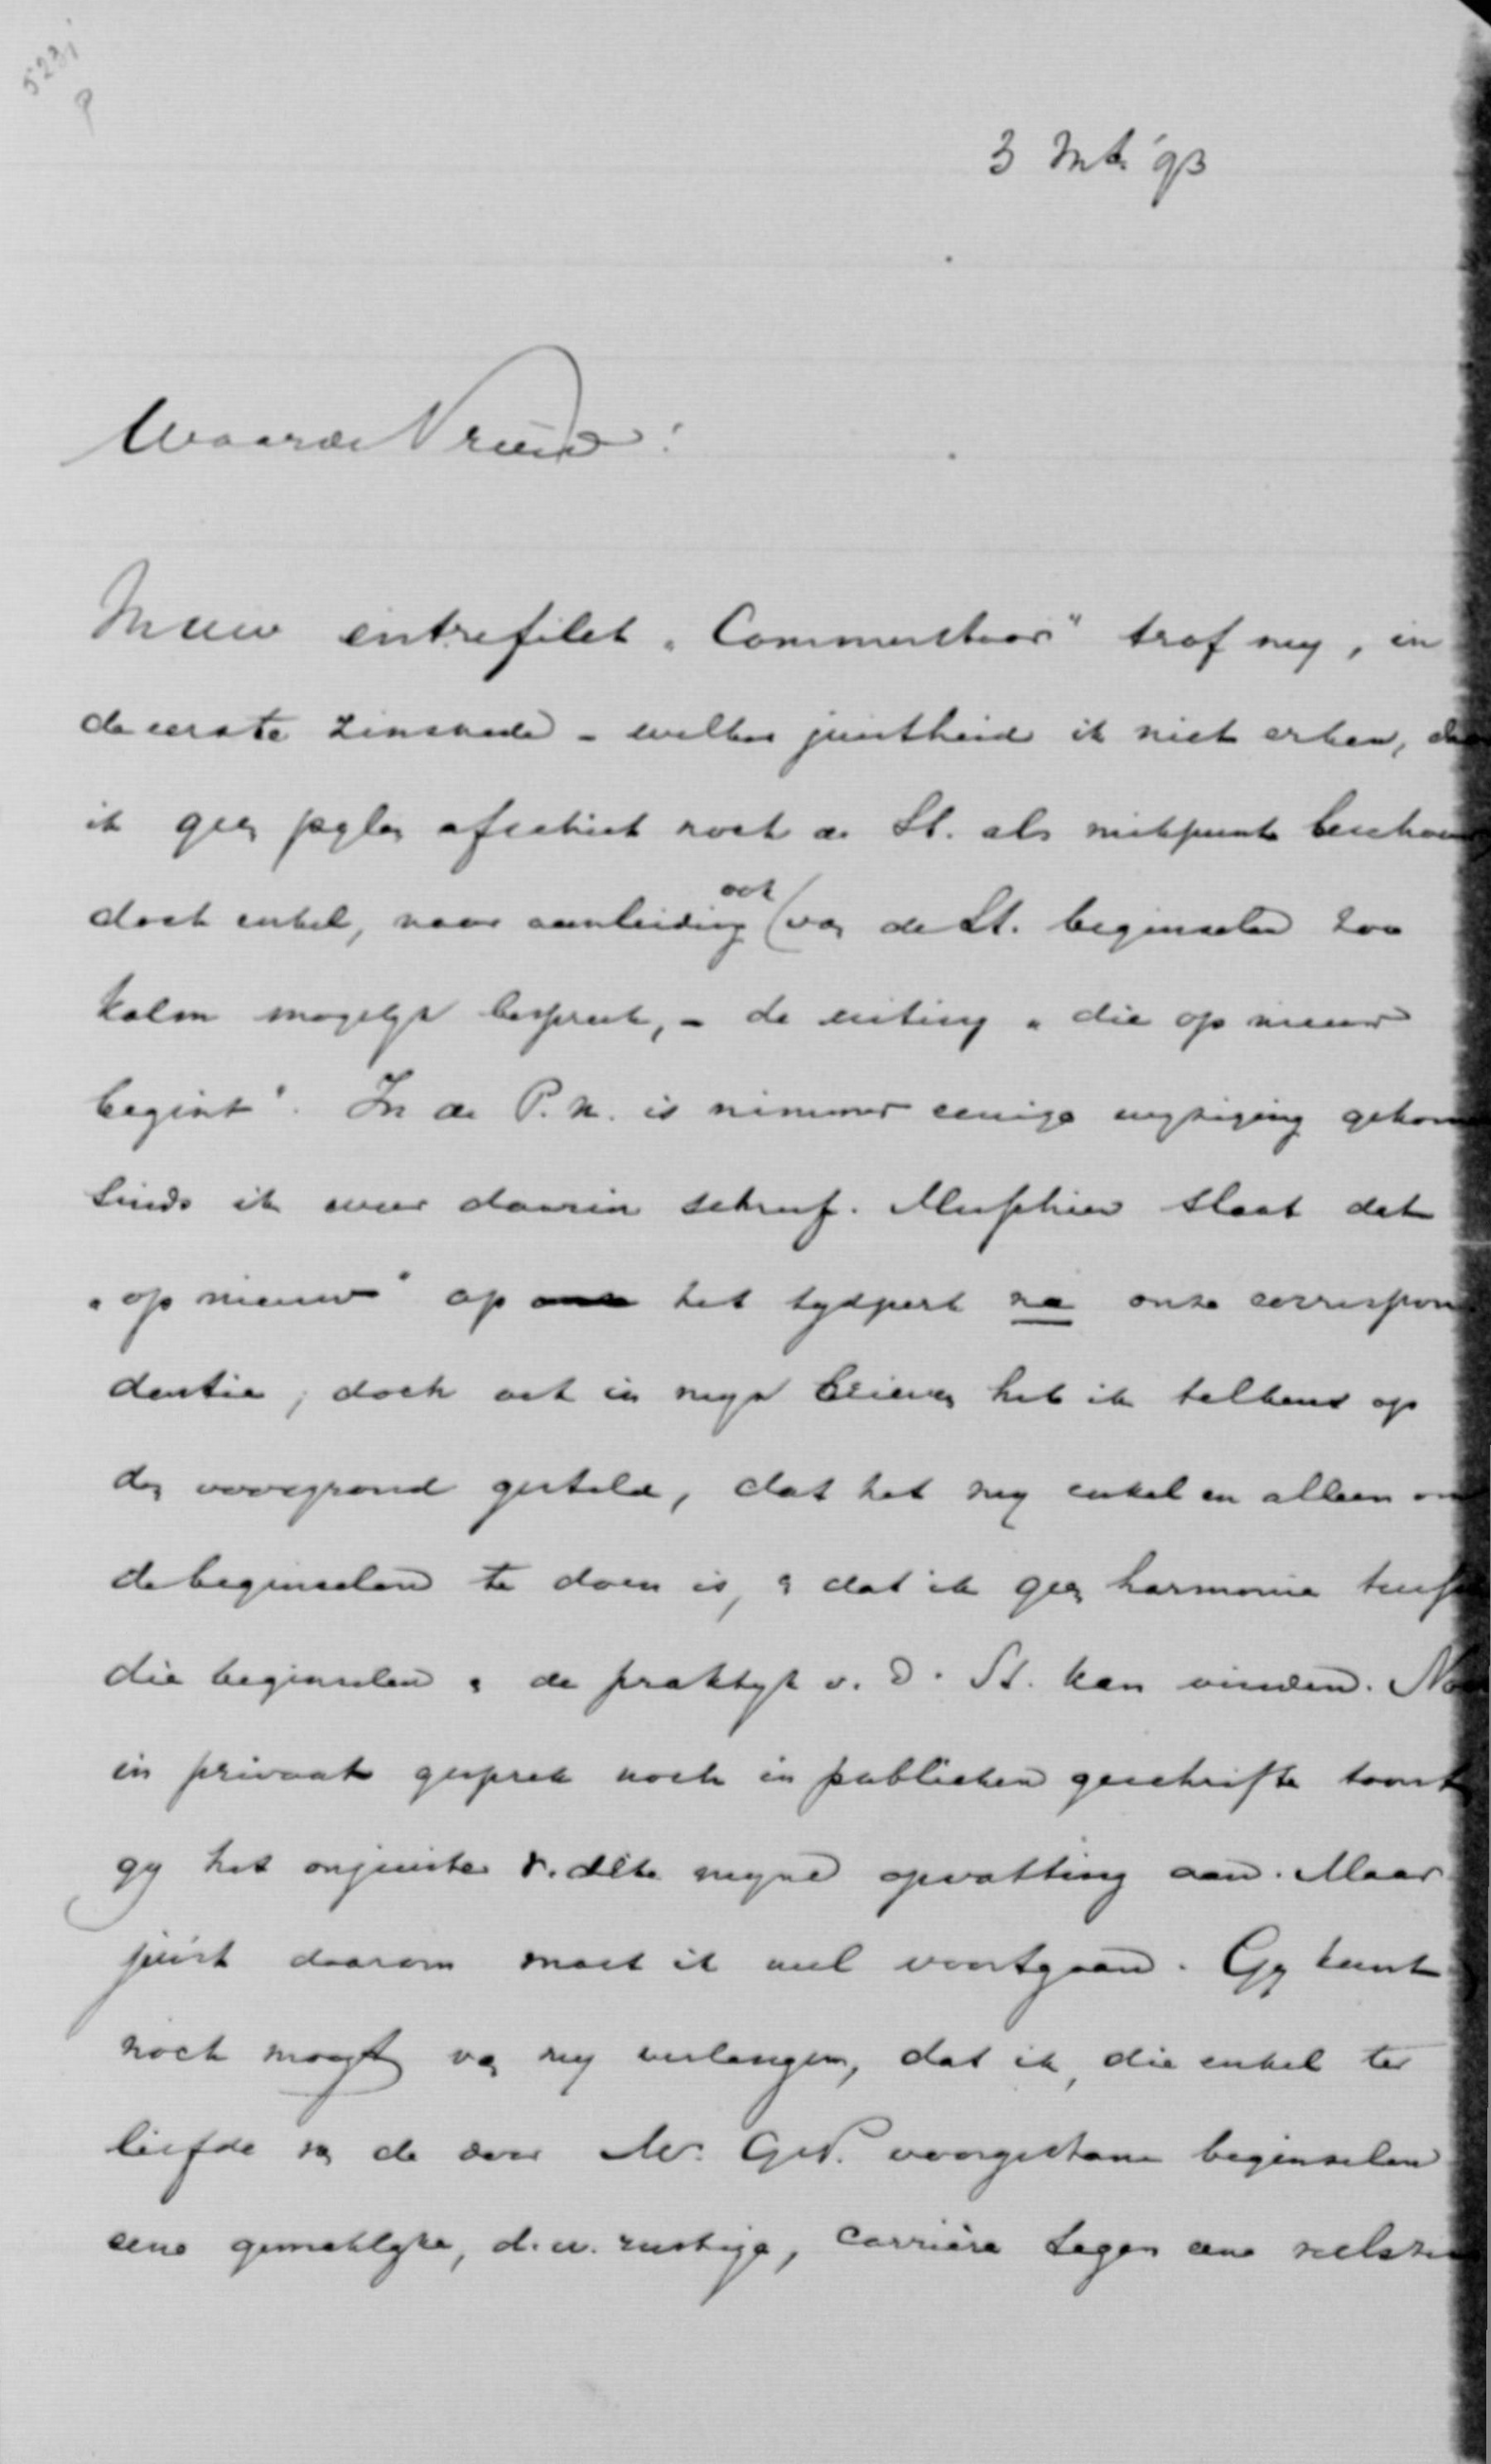 5231
P
3 Mt. '93
Waarde Vriend!
In uw entrefilet „Commentaar" trof my, in
de eerste zinsnede – welker juistheid ik niet erken, daar
ik geen pylen afschiet noch de St. als mikpunt beschouw
doch enkel, naar aanleiding ook van de St. beginselen zoo
kalm mogelyk bespreek, – de uiting „die op nieuw
begint". In de P.N. is nimmer eenige wyziging gekomen
sinds ik weer daarin schreef. Misschien slaat dat
„op nieuw" op het tydperk na onze correspon-
dentie; doch ook in myn brieven heb ik telkens op
den voorgrond gesteld, dat het my enkel en alleen om
de beginselen te doen is, & dat ik geen harmonie tussch
die beginselen & de praktyk v. d. St. kan vinden. Noch
in privaat gesprek noch in publieken geschrifte toont
gy het onjuiste v. deze myne opvatting aan. Maar
juist daarom moet ik wel voortgaan. Gy kunt
noch moogt van my verlangen, dat ik, die enkel ter
liefde van de door Mr. G.v.P. voorgestane beginselen
eene gemaklyke, d.w. rustige, carrière tegen eene